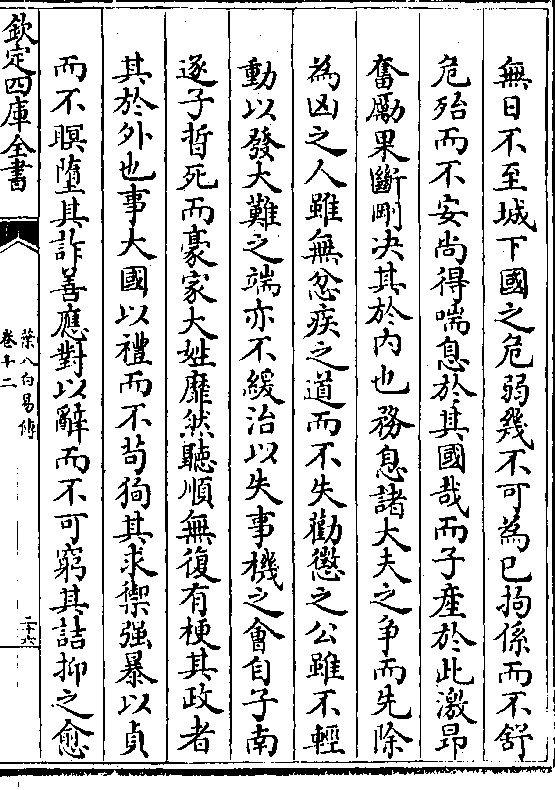 無日不至城下國之危弱幾不可為已拘係而不舒
危殆而不安尚得喘息於其國哉而子産於此激昂
奮勵果斷剛决其於内也務息諸大夫之争而先除
為凶之人雖無忿疾之道而不失勸懲之公雖不輕
動以發大難之端亦不緩治以失事機之會自子南
逐子晳死而豪家大姓靡然聽順無復有梗其政者
其於外也事大國以禮而不苟狥其求禦强暴以貞
而不瞑墮其詐善應對以辭而不可窮其詰抑之愈
欽定四庫全書
葉八白易傳
卷十二
二十六